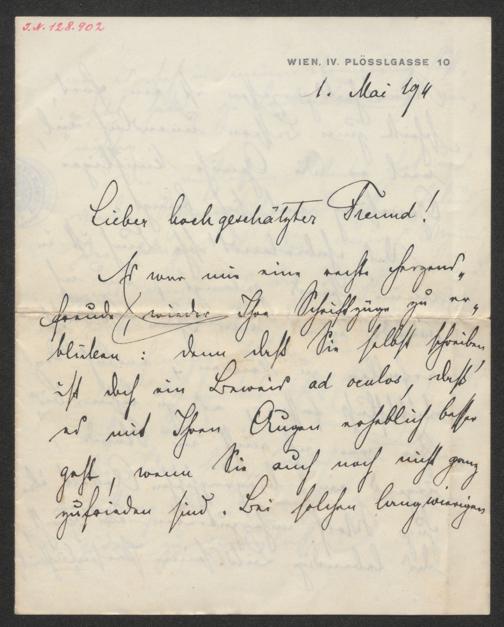 I.N. 128.902
WIEN, IV. PLÖSSLGASSE 10
1. Mai 1911
Lieber hochgeschätzter Freund!
Es war mir eine rechte Herzens„
freude, wieder Ihre Schriftzüge zu er„
blicken: denn daß Sie selbst schreiben,
ist doch ein Beweis ad oculos, daß
es mit Ihren Augen erheblich besser
geht, wenn Sie auch noch nicht ganz
zufrieden sind. Bei solchen langwierigen